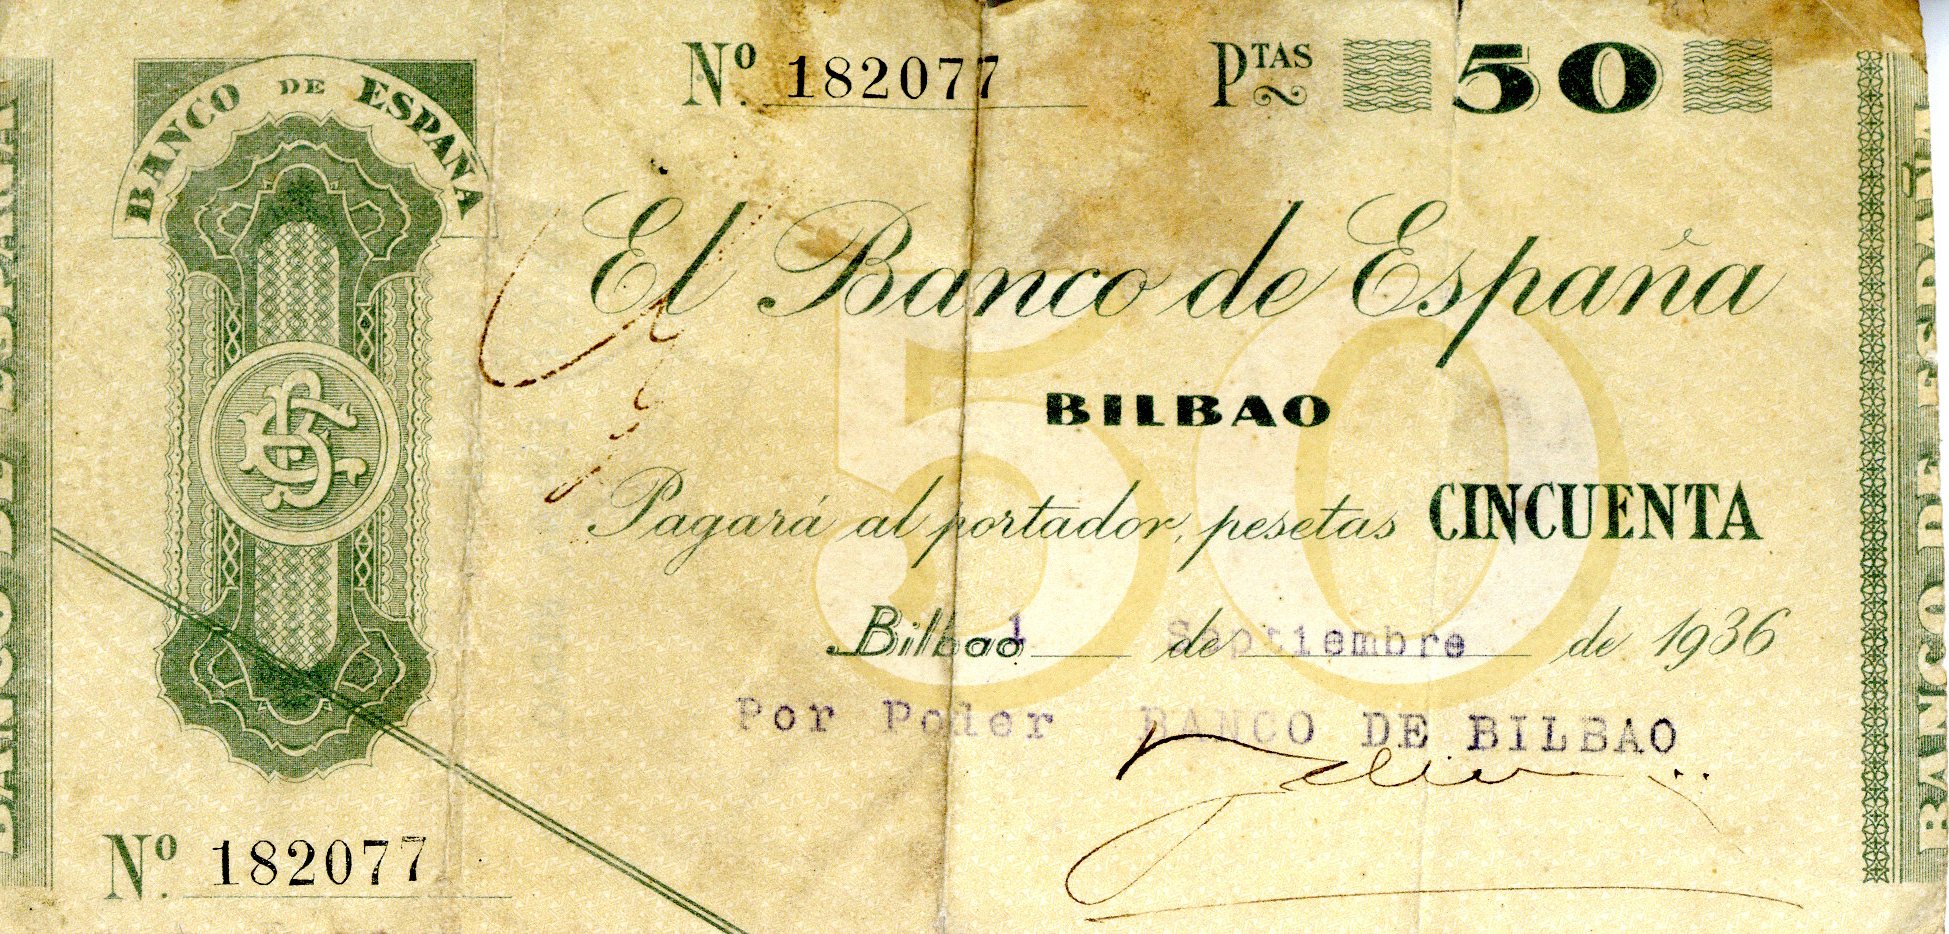 BANCO DE ESPAÑA
Nº 182077
PTAS 50
El Banco de España
BILBAO
Pagará al portador, pesetas CINCUENTA
Bilbao 1 de Septiembre de 1936
Por Poder BANCO DE BILBAO
Nº 182077
BANCO DE ESPAÑA
BANCO DE ESPAÑA
50